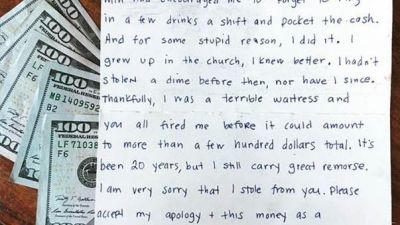 me to forget to ring
in a few drinks a shift and pocket the cash.
And for some stupid reason, I did it. I
grew up in the church, I knew better. I hadn't
stolen a dime before then, nor have I since.
Thankfully, I was a terrible waitress and
you all fired me before it could amount
to more than a few hundred dollars total. It's
been 20 years, but I still carry great remorse.
I am very sorry that I stole from you. Please
accept my apology + this money as a
100
F6
100
MB1409592
B2
100
LF7103
F6
100